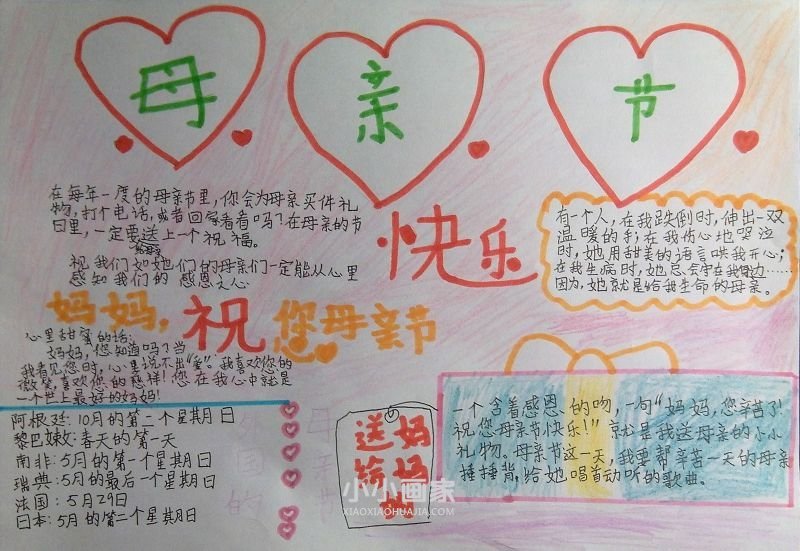 母 亲 节
在每年一度的母亲节里，你会为母亲买件礼
物，打个电话，或者回家看看吗？在母亲的节
日里，一定要送上一个祝福。
祝我们如她们的母亲们一定能从心里
感知我们的感恩之心
快乐
有一个人，在我跌倒时，伸出一双
温暖的手；在我伤心地哭泣
时，她用甜美的语言哄我开心；
在我生病时，她总会守在我身边……
因为，她就是给我生命的母亲。
妈妈，祝您母亲节
心里甜蜜的话：
妈妈，您知道吗？当
我看见您时，心里说不出“爱”。我喜欢您的
微笑，喜欢您的慈祥！您在我心中就是
一个世上最好的妈妈！
阿根廷：10月的第二个星期日
黎巴嫩：春天的第一天
南非：5月的第一个星期日
瑞典：5月的最后一个星期日
法国：5月29日
日本：5月的第二个星期日
各国的
母亲节
送给
妈妈
一个含着感恩的吻，一句“妈妈，您辛苦了！
祝您母亲节快乐！”就是我送母亲的小小
礼物。母亲节这一天，我要帮辛苦一天的母亲
捶捶背，给她唱首动听的歌曲。
小小画家
XIAOXIAOHUAJIA.COM